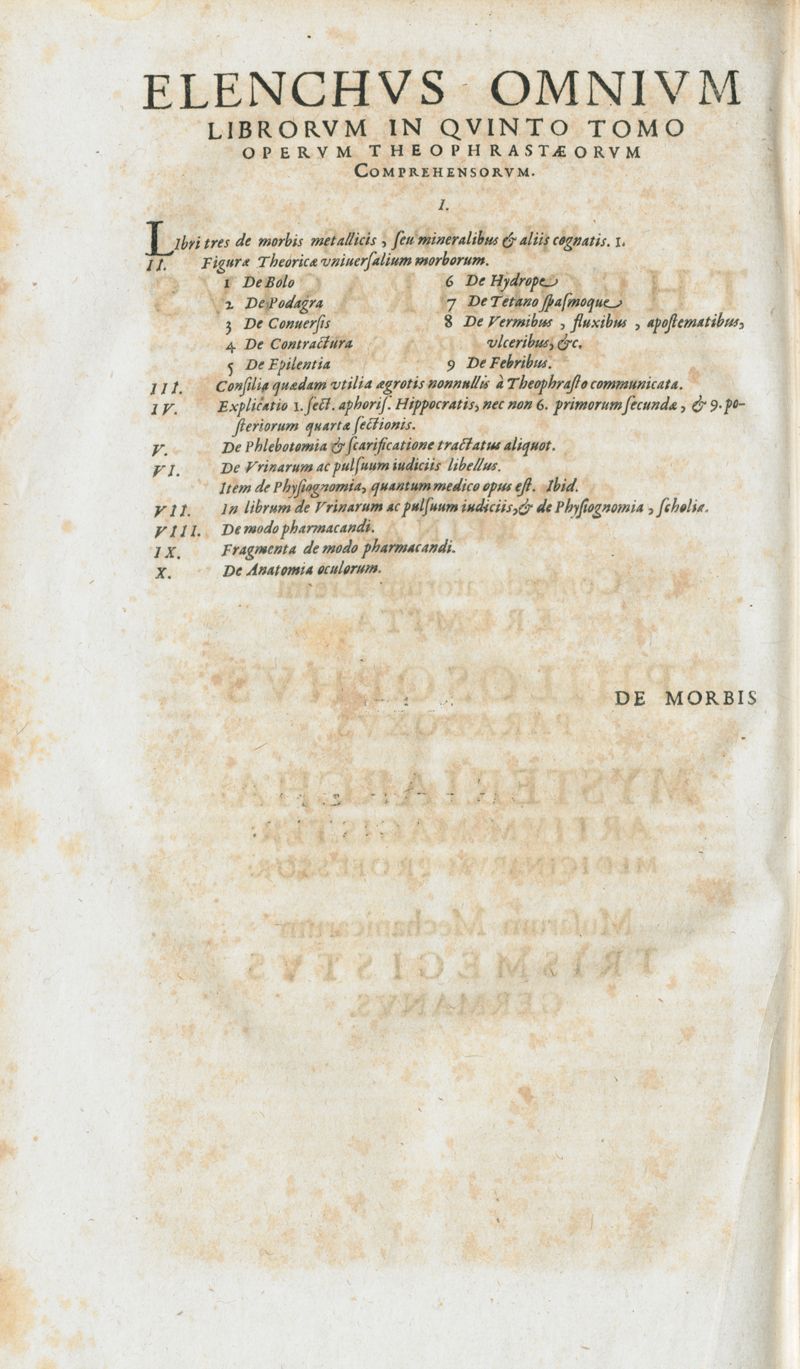 ELENCHVS OMNIVM
LIBRORVM IN QVINTO TOMO
OPERVM THEOPHRASTÆORVM
COMPREHENSORVM.
I.
LIbri tres de morbis metallicis, ſeu mineralibus & aliis cognatis. 1.
II. Figuræ Theoricæ vniuerſalium morborum.
1 De Bolo
6 De Hydrope
2 De Podagra
7 De Tetano ſpaſmoque
3 De Conuerſis
8 De Vermibus, fluxibus, apoſtematibus,
4 De Contractura
vlceribus, &c.
5 De Epilentia
9 De Febribus.
III. Conſilia quædam vtilia ægrotis nonnullis à Theophraſto communicata.
IV. Explicatio 1. ſect. aphoriſ. Hippocratis, nec non 6. primorum ſecundæ, & 9. po-
ſteriorum quartæ ſectionis.
V. De Phlebotomia & ſcarificatione tractatus aliquot.
VI. De Vrinarum ac pulſuum iudiciis libellus.
Item de Phyſiognomia, quantum medico opus eſt. Ibid.
VII. In librum de Vrinarum ac pulſuum iudiciis, & de Phyſiognomia, ſcholia.
VIII. De modo pharmacandi.
IX. Fragmenta de modo pharmacandi.
X. De Anatomia oculorum.
DE MORBIS